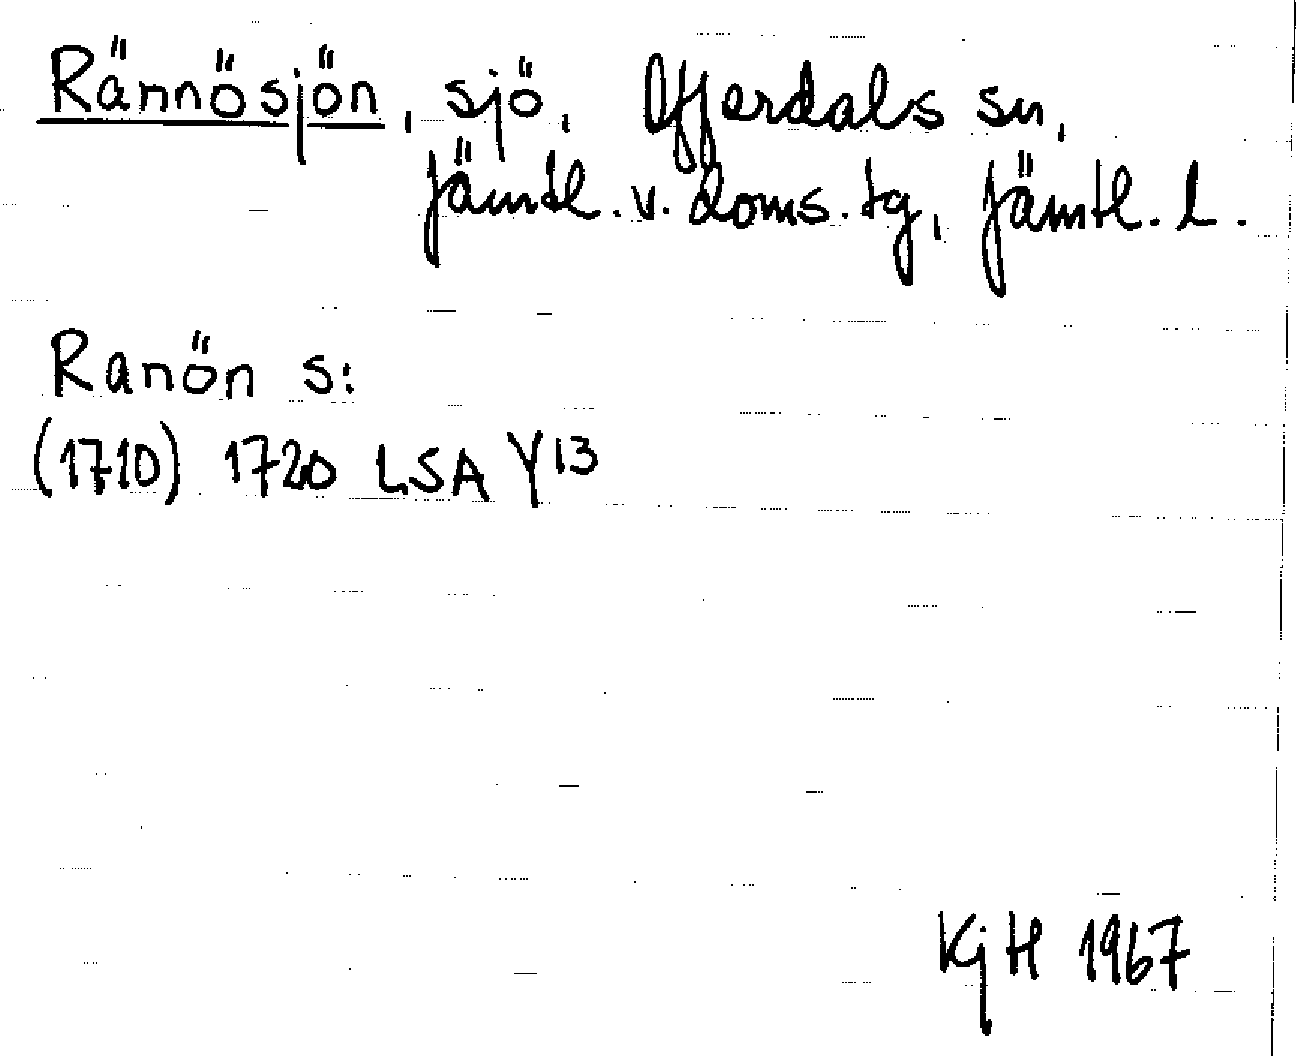 Rännösjön, sjö, Offerdals sn,
Jämtl. v. doms. tg, Jämtl. l.
Ranön s:
(1710) 1720 LSA Y13
KjH 1967